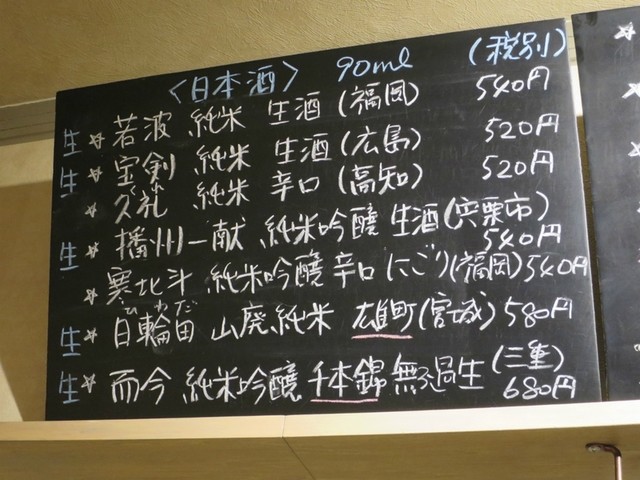 〈日本酒〉 90ml (税別)
生☆若波 純米 生酒(福岡) 540円
生☆宝剣 純米 生酒(広島) 520円
☆久礼 純米 辛口(高知) 520円
生☆播州一献 純米吟醸 生酒(宍粟市) 540円
☆寒北斗 純米吟醸 辛口 にごり(福岡) 540円
ひわだ
生☆日輪田 山廃純米 雄町(宮城) 580円
生☆而今 純米吟醸 千本錦 無ろ過生(三重) 680円